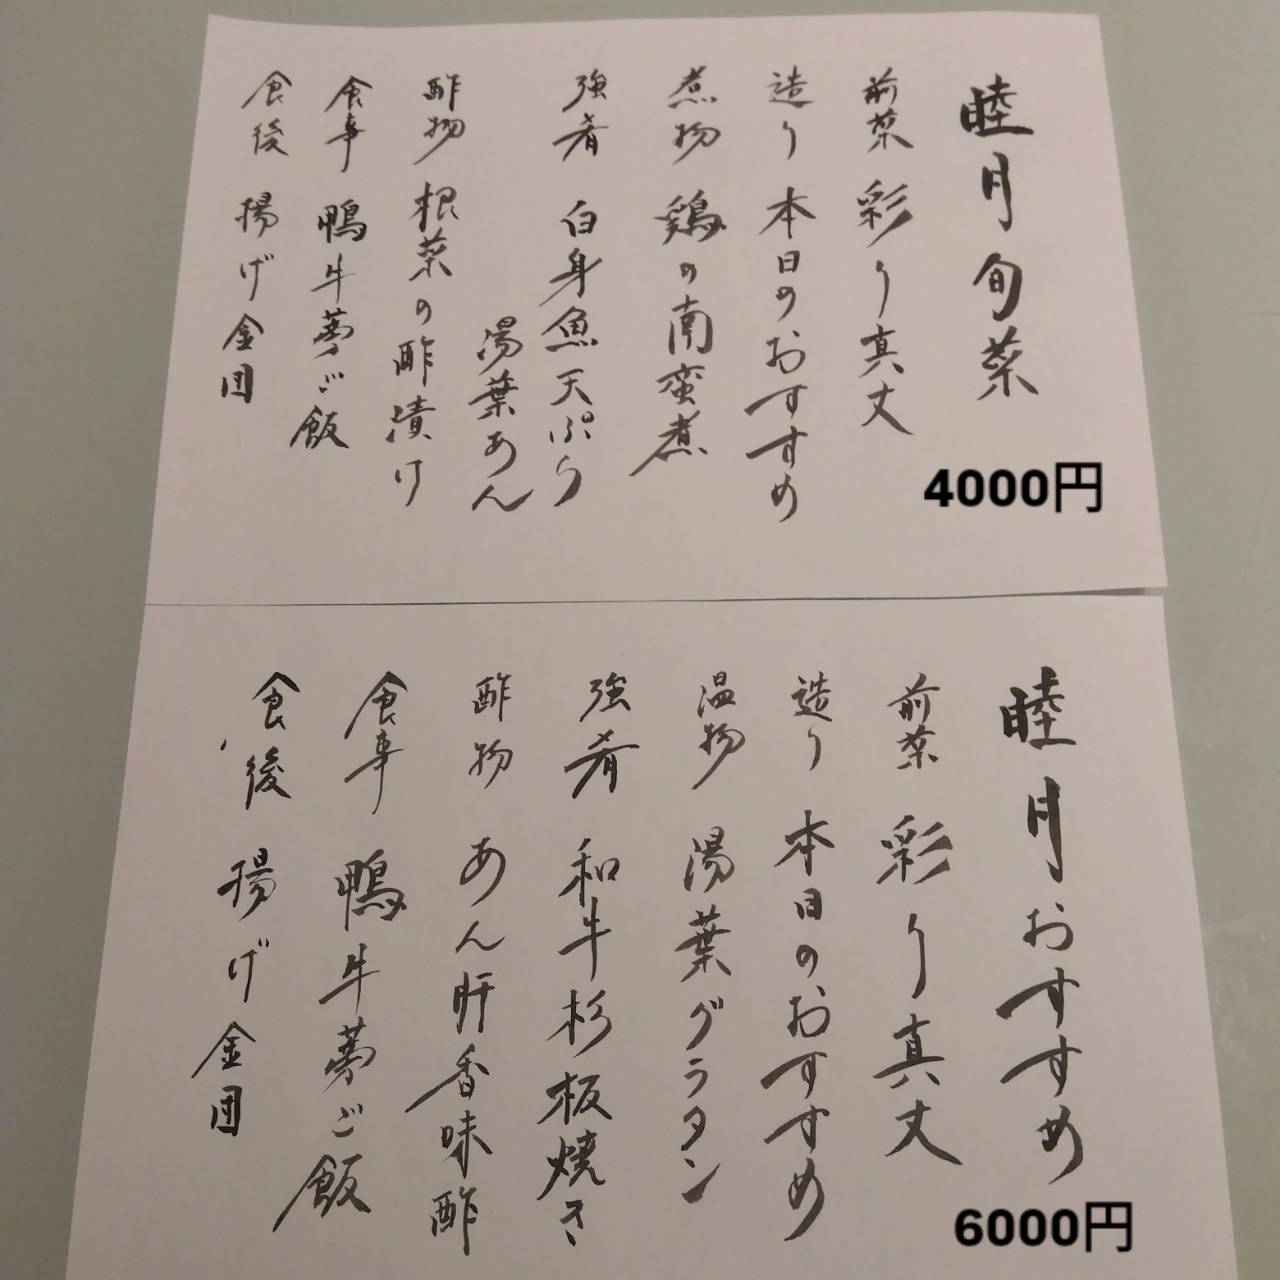 睦月旬菜
前菜 彩り真丈
造り 本日のおすすめ
煮物 鶏の南蛮煮
強肴 白身魚天ぷら
湯葉あん
酢物 根菜の酢漬け
食事 鴨牛蒡ご飯
食後 揚げ金団
4000円
睦月おすすめ
前菜 彩り真丈
造り 本日のおすすめ
温物 湯葉グラタン
強肴 和牛杉板焼き
酢物 あん肝香味酢
食事 鴨牛蒡ご飯
食後 揚げ金団
6000円